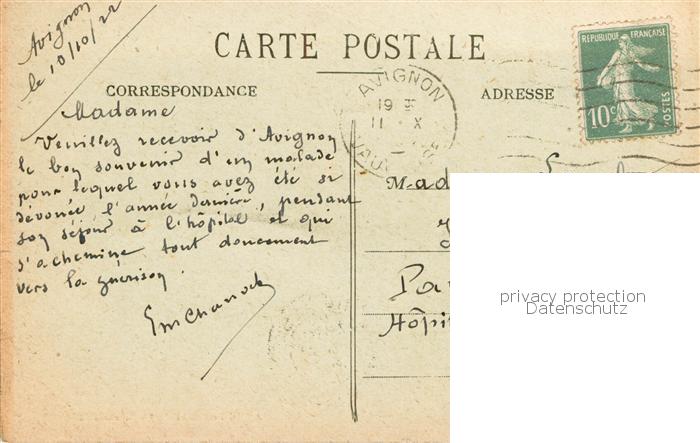 Avignon
le 10/10/22
CARTE POSTALE
CORRESPONDANCE
ADRESSE
REPUBLIQUE FRANÇAISE
10c
POSTES
AVIGNON
19
11 X
Madame
Veuillez recevoir d'Avignon
le bon souvenir d'un malade
pour lequel vous avez été si
dévouée l'année dernière, pendant
son séjour à l'hôpital et qui
s'achemine tout doucement
vers la guérison.
Mad
Pa
Hôpi
privacy protection
Datenschutz